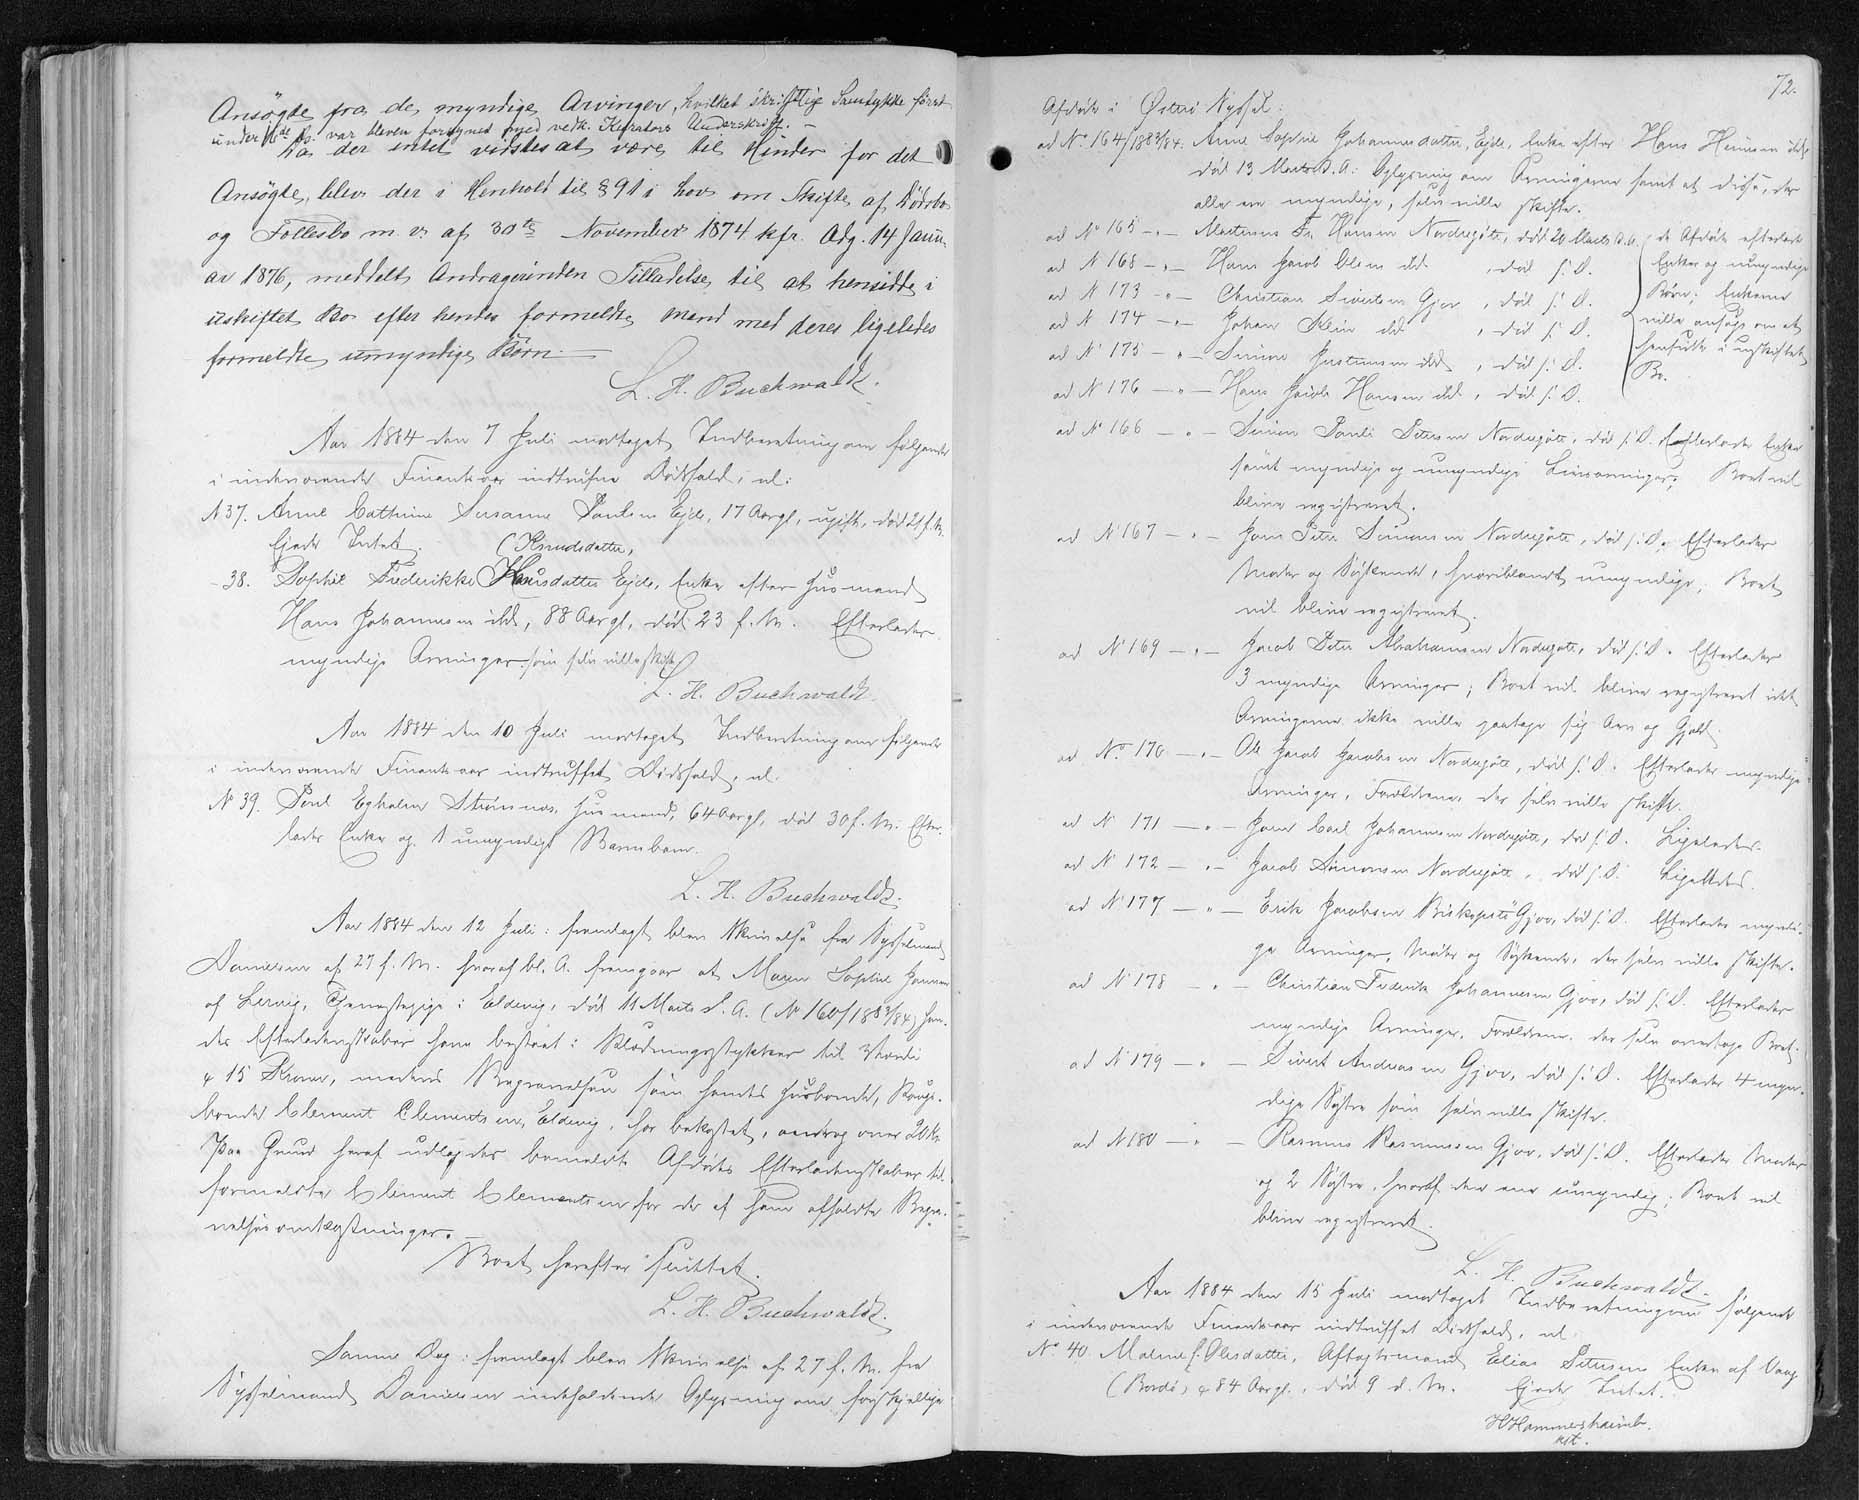 Ansøgte fra de myndige Arvinger, hvilket skriftlige Samtykke først
under 16de ds. var bleven forsynet med vedk. Kurators Underskrift. –
Da der intet vidstes at være til Hinder for det
Ansøgte, blev der i Henhold til § 91 i Lov om Skifte af Dødsbo
og Fællesbo m. v. af 30te November 1874 kfr. Adg. 14 Janu-
ar 1876, meddelt Andragerinden Tilladelse til at hensidde i
uskiftet Bo efter hendes formeldte Mand med deres ligeledes
formeldte umyndige Børn.
L. H. Buchwaldt.
Aar 1884 den 7 Juli modtaget Indberetning om følgende
i indeværende Finantsaar indtrufne Dødsfald, nl:
N 37. Anne Cathrine Susanne Poulsen Ejde, 17 Aar gl, ugift, død 21 f. M.
Ejede Intet.
(Knudsdatter,
- 38. Sophie Frederikke Hansdatter Ejde, Enke efter Husmand
Hans Johannesen ibd, 88 Aar gl, død 23 f. M. Efterlader
myndige Arvinger som selv ville skifte
L. H. Buchwaldt
Aar 1884 den 10 Juli modtaget Indberetning om følgende
i indeværende Finantsaar indtruffet Dødsfald, nl.
N 39. Poul Egholm Strømnæs, Husmand, 64 Aar gl, død 30 f. M. Efter-
lader Enke og 1 umyndigt Barnebarn.
L. H. Buchwaldt.
Aar 1884 den 12 Juli: fremlagt blev Skrivelse fra Sysselmand
Danielsen af 27 f. M. hvoraf bl. A. fremgaar at Maren Sophie Joensen
af Lervig, Tjenestepige i Eldevig, død 11 Marts d. A. (No 160/1883/84) hen-
des Efterladenskaber have bestaaet i Klædningsstykker til Værdi
c. 15 Kroner, medens Begravelsen som hendes Husbonde, Kongs-
bonde Clement Clementsen, Eldevig, har bekostet, androg over 20 Kr.
Paa Grund heraf udlagdes bemeldte Afdødes Efterladenskaber til
formeldte Clement Clementsen for de af ham afholdte Begra-
velsesomkostninger.
Boet herefter sluttet.
L. H. Buchwaldt.
Samme Dag: fremlagt blev Skrivelse af 27 f. M. fra
Sysselmand Danielsen indeholdende Oplysning om forskjellige
72.
Afdøde i Østerø Syssel:
ad No. 164/1883/84. Anne Sophie Johannesdatter, Ejde, Enke efter Hans Hansen ibd,
død 13 Marts d. A: Oplysning om Arvingerne samt at disse, der
alle ere myndige, selv ville skifte.
ad No 165 –„– Martinus Fr. Hansen Nordregøte, død 20 Marts d. A.
ad N 168 –„– Hans Jacob Olsen ibd , død s. D.
ad N 173 –„– Christian Sivertsen Gjov , død s. D.
ad N 174 –„– Johan Klein ibd , død s. D.
ad N 175 –„– Simon Justinussen ibd , død s. D.
ad N 176 –„– Hans Jacob Hansen ibd , død s. D.
de Afdøde efterlade
Enker og umyndige
Børn; Enkerne
ville ansøge om at
hensidde i uskiftet
Bo.
ad No 166 –„– Simon Pauli Petersen Nordregøte, død s. D. Efterlader Enke
samt myndige og umyndige Livsarvinger; Boet vil
blive registreret.
ad N 167 –„– Joen Peter Simonsen Nordregøte, død s. D. Efterlader
Moder og Søskende, hvoriblandt umyndige; Boet
vil blive registreret.
ad N 169 –„– Jacob Peter Abrahamsen Nordregøte, død s. D. Efterlader
3 myndige Arvinger; Boet vil blive registreret idet
Arvingerne ikke ville paatage sig Arv og Gjæld.
ad No. 170 –„– Ole Jacob Jacobsen Nordregøte, død s. D. Efterlader myndige
Arvinger, Forældrene, der selv ville skifte.
ad N 171 –„– Joen Carl Johannesen Nordregøte, død s. D. Ligeledes.
ad N 172 –„– Jacob Simonsen Nordregøte, død s. D. Ligeledes.
ad N 177 –„– Erik Jacobsen Biskopstø Gjov, død s. D. Efterlader myndi-
ge Arvinger, Moder og Søskende, der selv ville skifte.
ad N 178 –„– Christian Frederik Johannesen Gjov, død s. D. Efterlader
myndige Arvinger, Forældrene, der selv overtage Boet.
ad N 179 –„– Sivert Andreasen Gjov, død s. D. Efterlader 4 myn-
dige Søstre som selv ville skifte.
ad N 180 –„– Rasmus Rasmussen Gjov, død s. D. Efterlader Moder
og 2 Søstre, hvoraf den ene umyndig; Boet vil
blive registreret.
L. H. Buchwaldt.
Aar 1884 den 15 Juli modtaget Indberetning om følgende
i indeværende Finantsaar indtruffet Dødsfald, nl.
No. 40. Malene f. Olesdatter, Aftægtsmand Elias Petersens Enke af Vaag
(Bordø) c. 84 Aar gl., død 9 d. M. Ejede Intet.
HHammershaimb.
kst.